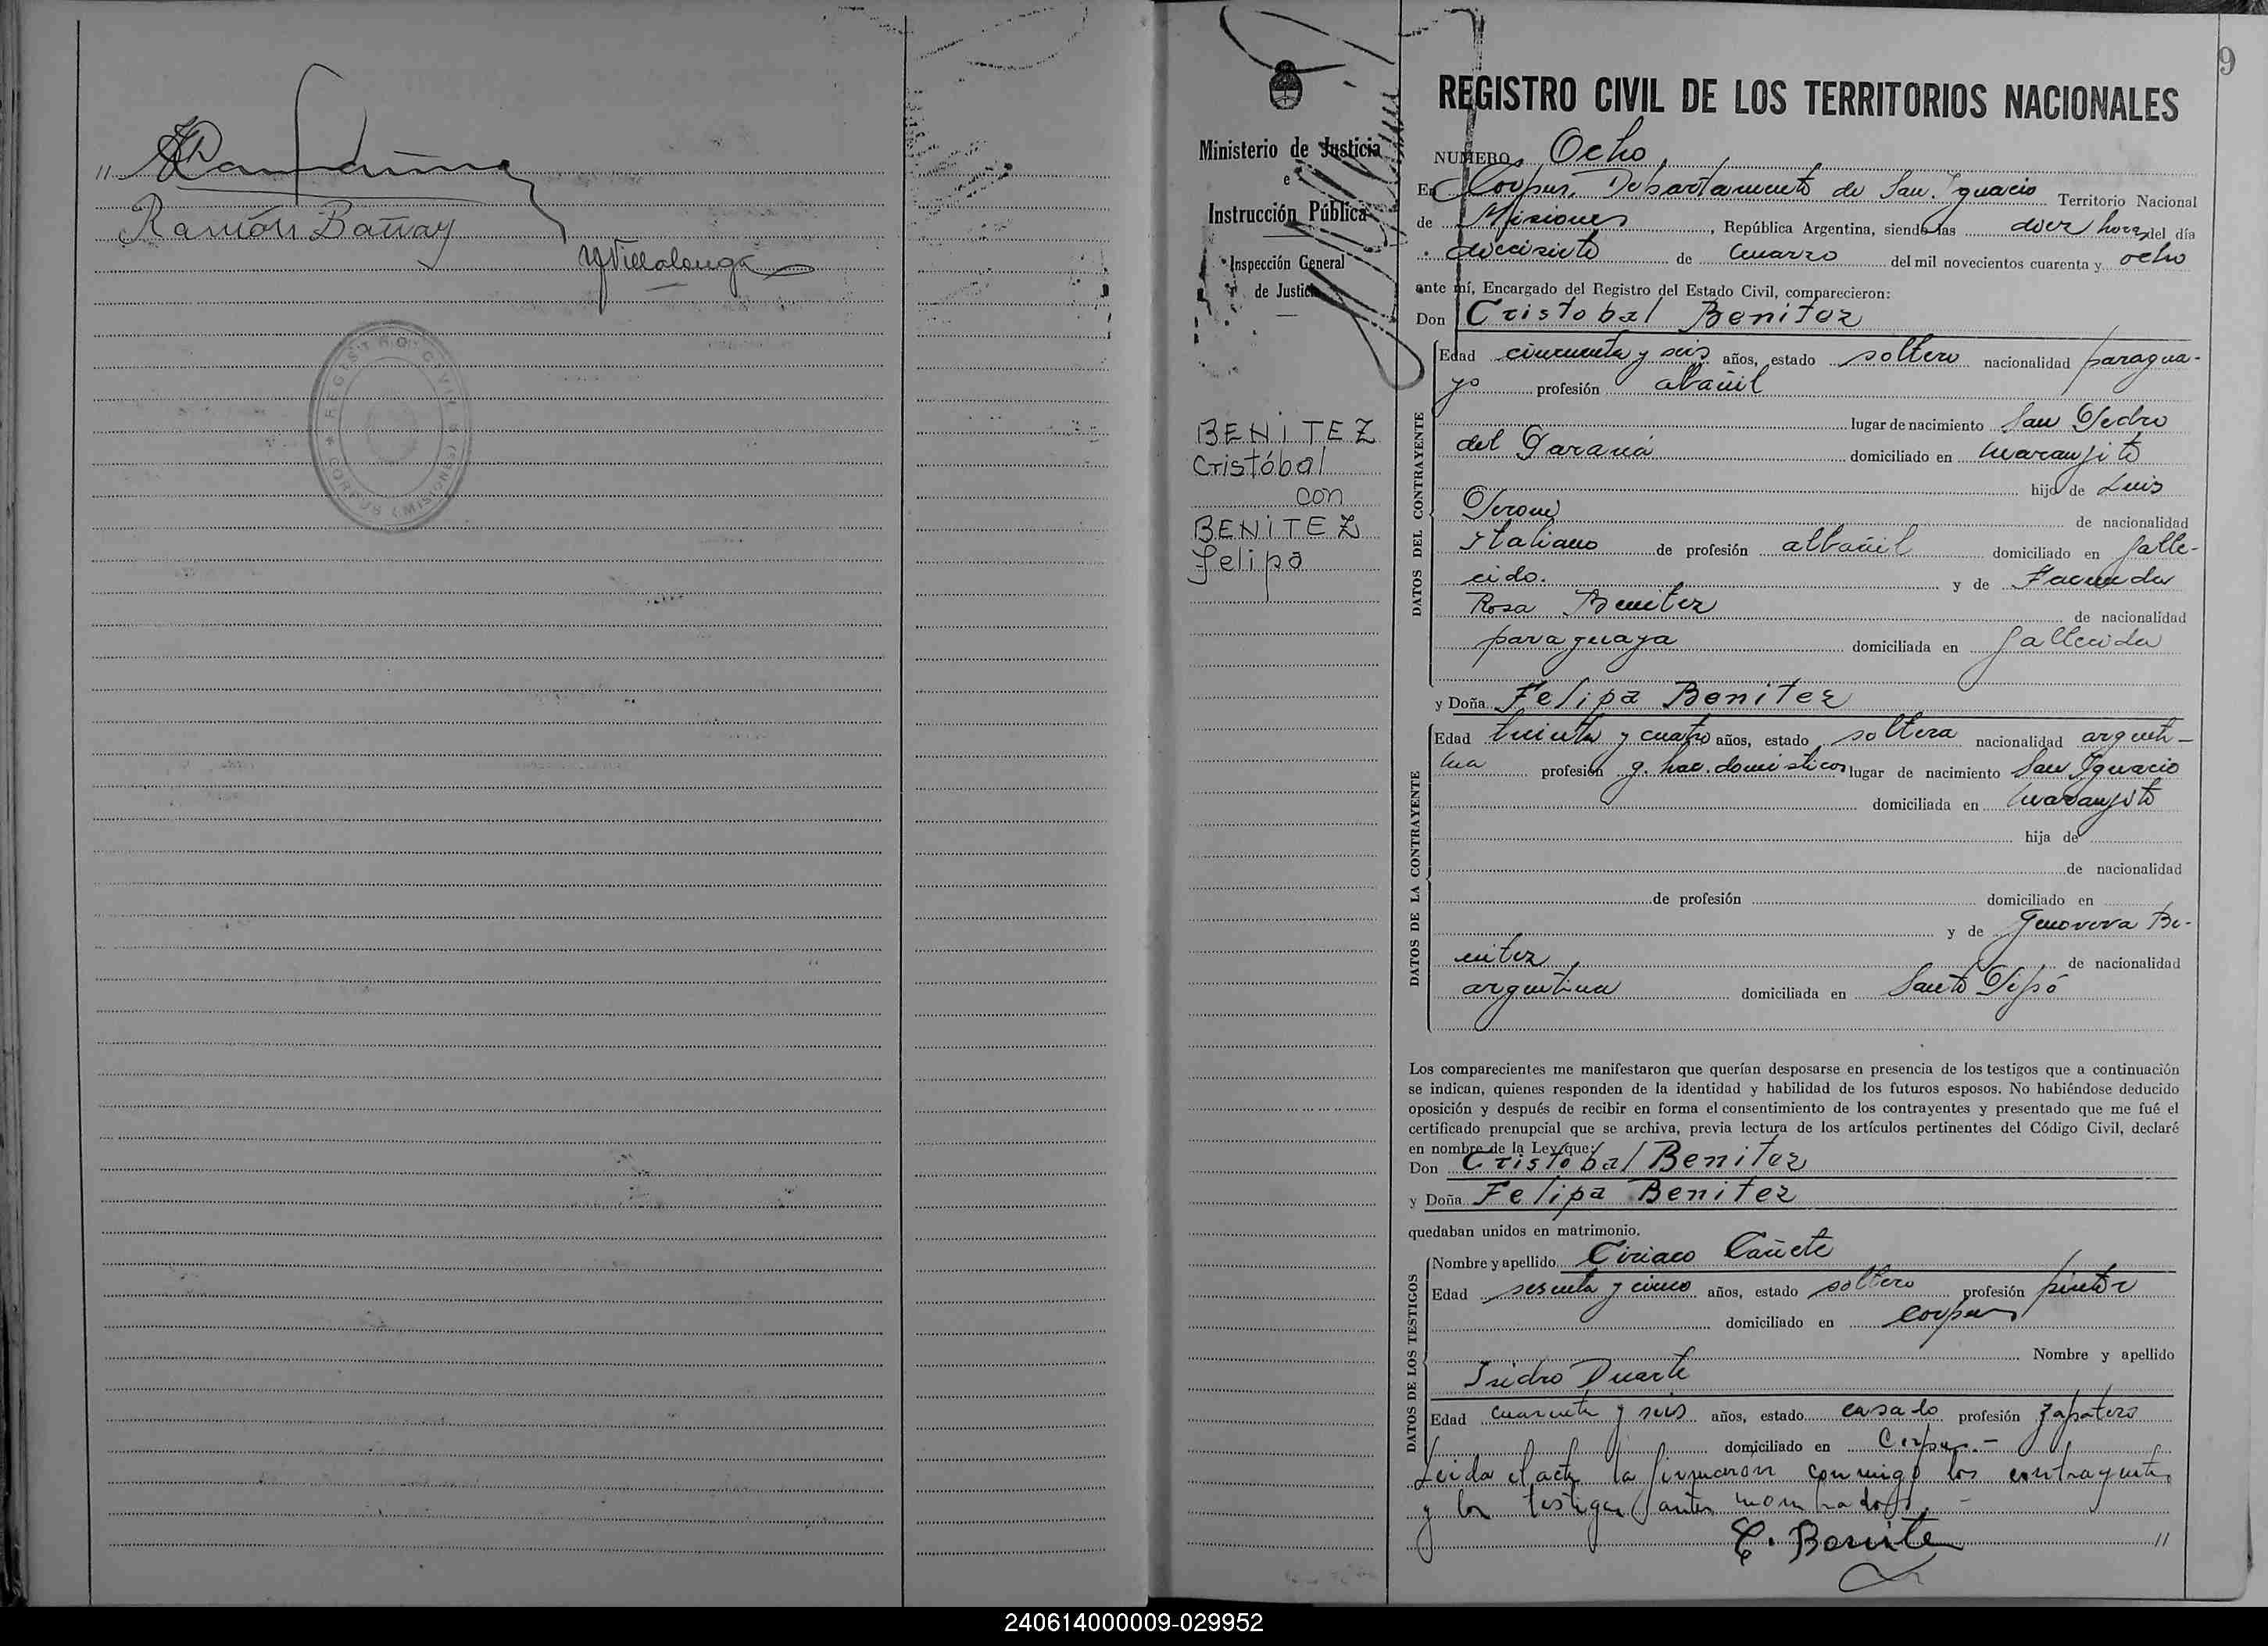 Ramón Battay
Y Villalonga
REGISTRO CIVIL
CORPUS (MISIONES)
9
Ministerio de Justicia
e
Instrucción Pública
Inspección General
de Justicia
BENITEZ
Cristóbal
con
BENITEZ
Felipa
REGISTRO CIVIL DE LOS TERRITORIOS NACIONALES
NUMERO Ocho
En Corpus, Departamento de San Ignacio Territorio Nacional
de Misiones, República Argentina, siendo las diez horas del día
diecisiete de enero del mil novecientos cuarenta y ocho
ante mí, Encargado del Registro del Estado Civil, comparecieron:
Don Cristobal Benitez
DATOS DEL CONTRAYENTE
Edad cincuenta y seis años, estado soltero nacionalidad paragua-
yo profesión albañil
lugar de nacimiento San Pedro
del Paraná domiciliado en Naranjito
hijo de Luis
de nacionalidad
Italiano de profesión albañil domiciliado en falle-
cido. y de Facunda
Rosa Benitez de nacionalidad
paraguaya domiciliada en fallecida
y Doña Felipa Benitez
DATOS DE LA CONTRAYENTE
Edad treinta y cuatro años, estado soltera nacionalidad argenti-
na profesión q. hac. domésticos lugar de nacimiento San Ignacio
domiciliada en Naranjito
hija de
de nacionalidad
de profesión domiciliado en
y de Genoveva Be-
nitez de nacionalidad
argentina domiciliada en Santo Pipó
Los comparecientes me manifestaron que querían desposarse en presencia de los testigos que a continuación
se indican, quienes responden de la identidad y habilidad de los futuros esposos. No habiéndose deducido
oposición y después de recibir en forma el consentimiento de los contrayentes y presentado que me fué el
certificado prenupcial que se archiva, previa lectura de los artículos pertinentes del Código Civil, declaré
en nombre de la Ley que:
Don Cristobal Benitez
y Doña Felipa Benitez
quedaban unidos en matrimonio.
DATOS DE LOS TESTIGOS
Nombre y apellido Ciriaco Cañete
Edad sesenta y cinco años, estado soltero profesión pintor
domiciliado en Corpus
Nombre y apellido
Isidro Duarte
Edad cuarenta y seis años, estado casado profesión zapatero
domiciliado en Corpus.-
Leída el acta la firmaron conmigo los contrayentes
y los testigos antes nombrados. -
C. Benite //
240614000009-029952